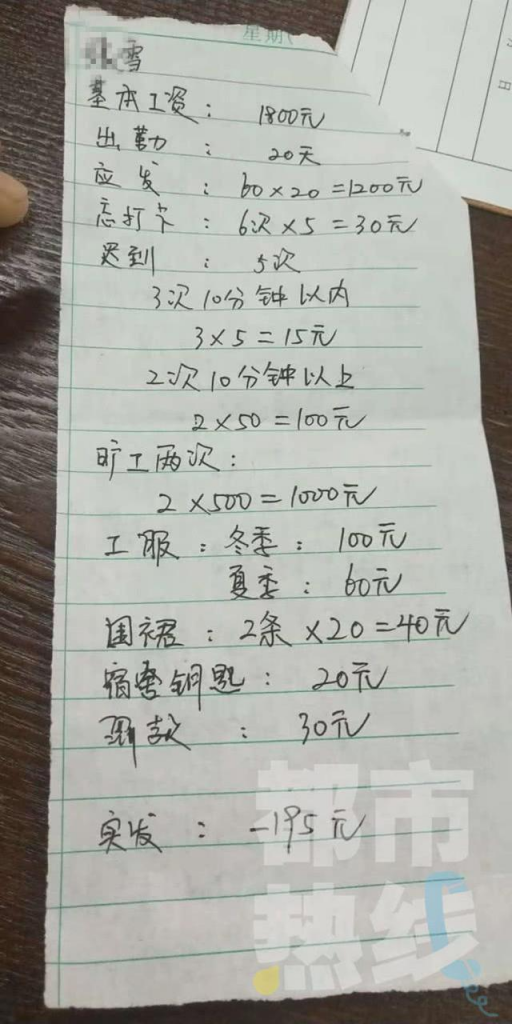 星期
雪
基本工资： 1800元
出勤： 20天
应发： 60×20=1200元
忘打卡： 6次×5=30元
迟到： 5次
3次10分钟以内
3×5=15元
2次10分钟以上
2×50=100元
旷工两次：
2×500=1000元
工服：冬季：100元
夏季：60元
围裙：2条×20=40元
宿舍钥匙：20元
罚款：30元
实发：-195元
都市
热线